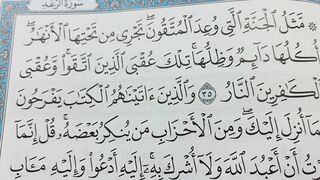 سورة الرعد
۞ مَّثَلُ ٱلْجَنَّةِ ٱلَّتِى وُعِدَ ٱلْمُتَّقُونَۖ تَجْرِى مِن تَحْتِهَا ٱلْأَنْهَٰرُۖ
أُكُلُهَا دَآئِمٌ وَظِلُّهَاۚ تِلْكَ عُقْبَى ٱلَّذِينَ ٱتَّقَوا۟ۖ وَّعُقْبَى
ٱلْكَٰفِرِينَ ٱلنَّارُ ٣٥ وَٱلَّذِينَ ءَاتَيْنَٰهُمُ ٱلْكِتَٰبَ يَفْرَحُونَ
بِمَآ أُنزِلَ إِلَيْكَۖ وَمِنَ ٱلْأَحْزَابِ مَن يُنكِرُ بَعْضَهُۥۚ قُلْ إِنَّمَآ
أُمِرْتُ أَنْ أَعْبُدَ ٱللَّهَ وَلَآ أُشْرِكَ بِهِۦٓۚ إِلَيْهِ أَدْعُوا۟ وَإِلَيْهِ مَـَٔابِ